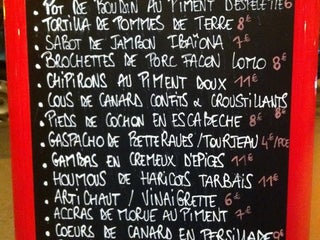 • POT DE BOUDIN AU PIMENT D'ESPELETTE 6
• TORTILLA DE POMMES DE TERRE 8€
• SABOT DE JAMBON IBAÏONA 7€
• BROCHETTES DE PORC FACON LOMO 8€
• CHIPIRONS AU PIMENT DOUX 11€
• COUS DE CANARD CONFITS & CROUSTILLANTS 8€
• PIEDS DE COCHON EN ESCABECHE 8€
• GASPACHO DE BETTERAVES / TOURTEAU 4€/PCE
• GAMBAS EN CREMEUX D'EPICES 11€
• HOUMOUS DE HARICOTS TARBAIS 11€
• ARTICHAUT / VINAIGRETTE 6€
• ACCRAS DE MORUE AU PIMENT 7€
• COEURS DE CANARD EN PERSILLADE 9€